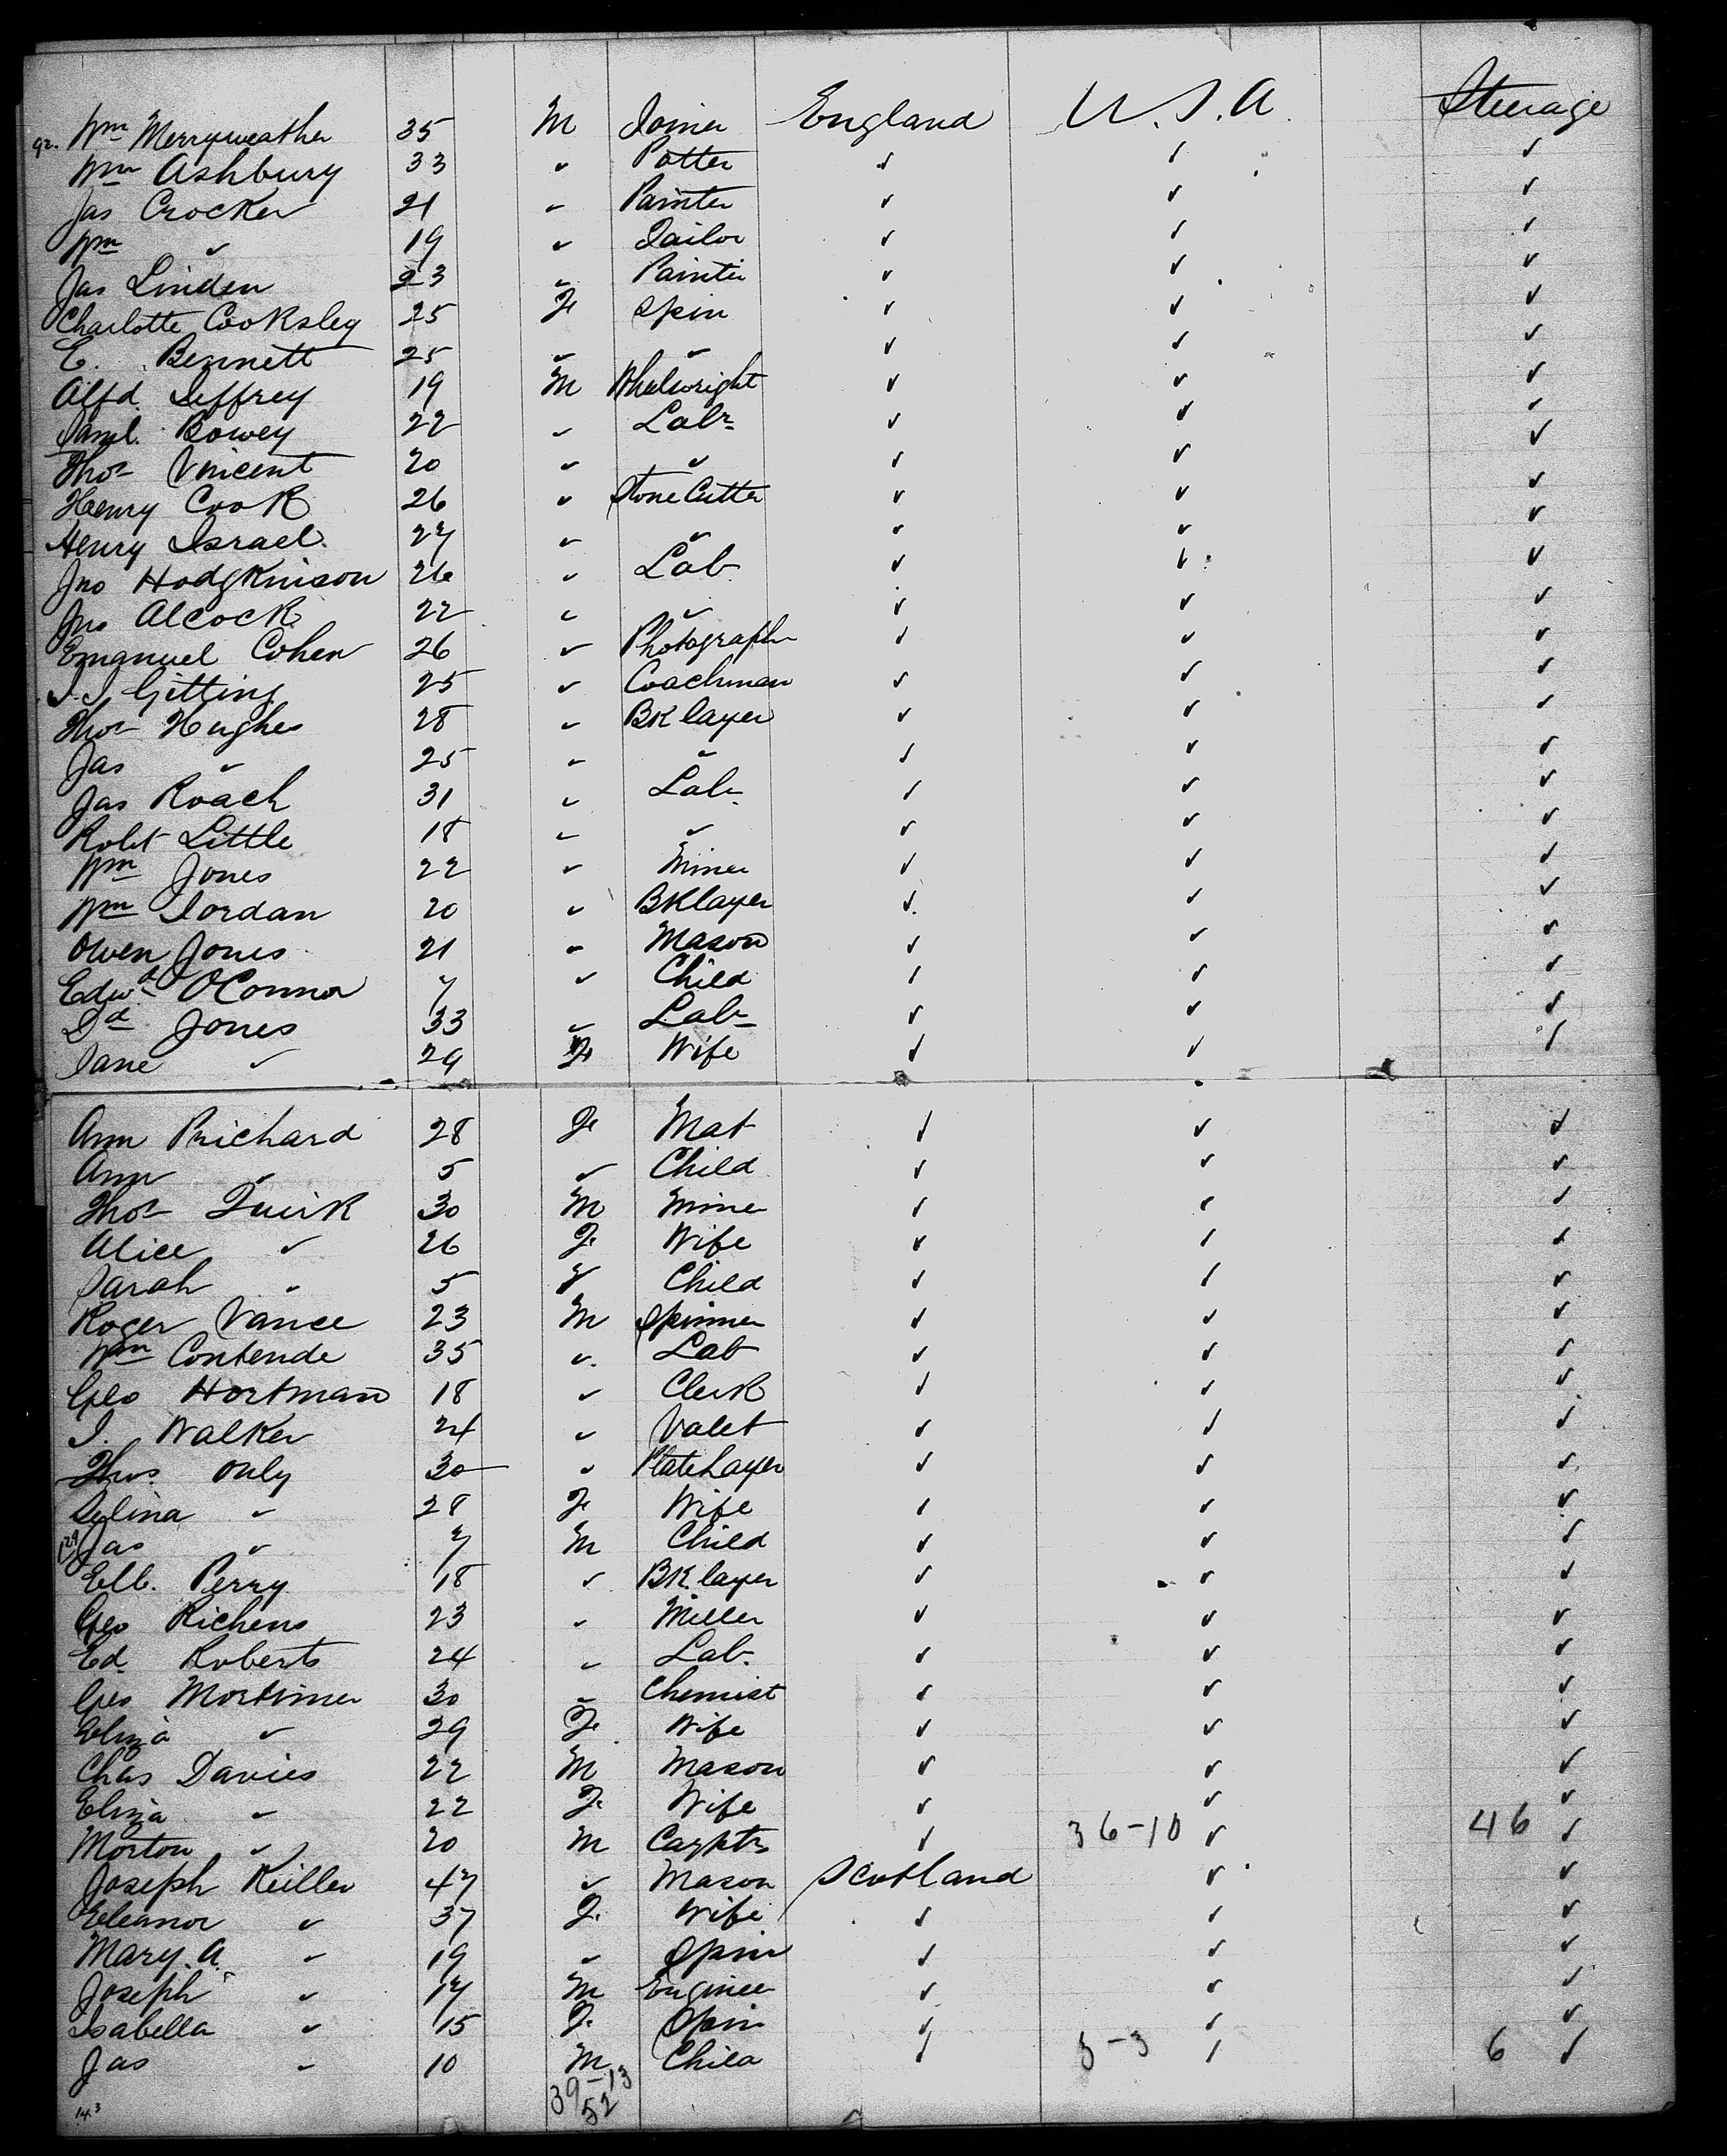 92. Wm Merryweather 35 M Joiner England U.S.A. Steerage
Wm Ashbury 33 " Potter " " "
Jas Crocker 21 " Painter " " "
Wm " 19 " Tailor " " "
Jas Linden 23 " Painter " " "
Charlotte Cooksley 25 Fe Spin " " "
E. Bennett 25 " " " " "
Alfd. Jeffrey 19 M Whelwright " " "
Saml. Bowey 22 " Labr " " "
Thos Vincent 20 " " " " "
Henry Cook 26 " Stone Cutter " " "
Henry Israel 27 " " " " "
Jno Hodgkinson 26 " Lab " " "
Jno Alcock 22 " " " " "
Emanuel Cohen 26 " Photographr " " "
J. J. Gitting 25 " Coachman " " "
Thos Hughes 28 " BK layer " " "
Jas " 25 " " " " "
Jas Roach 31 " Labr " " "
Robt Little 18 " " " " "
Wm Jones 22 " Miner " " "
Wm Jordan 20 " BKlayer " " "
Owen Jones 21 " Mason " " "
Edwd OConnor 7 " Child " " "
Dd Jones 33 " Lab " " "
Jane " 29 Fe Wife " " "
Ann Prichard 28 Fe Mat " " "
Ann " 5 " Child " " "
Thos Quirk 30 M Miner " " "
Alice " 26 Fe Wife " " "
Sarah " 5 " Child " " "
Roger Vance 23 M Spinner " " "
Wm Contende 35 " Lab " " "
Geo Hortman 18 " Clerk " " "
J. Walker 24 " Valet " " "
Thos. Only 30 " Plate Layer " " "
Selina " 28 Fe Wife " " "
129 Jas " 7 M Child " " "
Elb. Perry 18 " BK. layer " " "
Geo Richens 23 " Miller " " "
Ed. Roberts 24 " Lab. " " "
Geo Mortimer 30 " Chemist " " "
Eliza " 29 Fe Wife " " "
Chas Davies 22 M Mason " " "
Eliza " 22 Fe Wife " " "
Morton " 20 M Carptr " 36-10 " 46 "
Joseph Keiller 47 " Mason Scotland " "
Eleanor " 37 Fe Wife " " "
Mary. A. " 19 " Spin " " "
Joseph " 17 M Engineer " " "
Isabella " 15 Fe Spin " " "
Jas " 10 M Child " 3-3 " 6 "
39-13
52
143